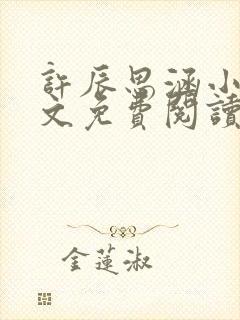 許辰思涵小
文免費閱讀
金蓮淑